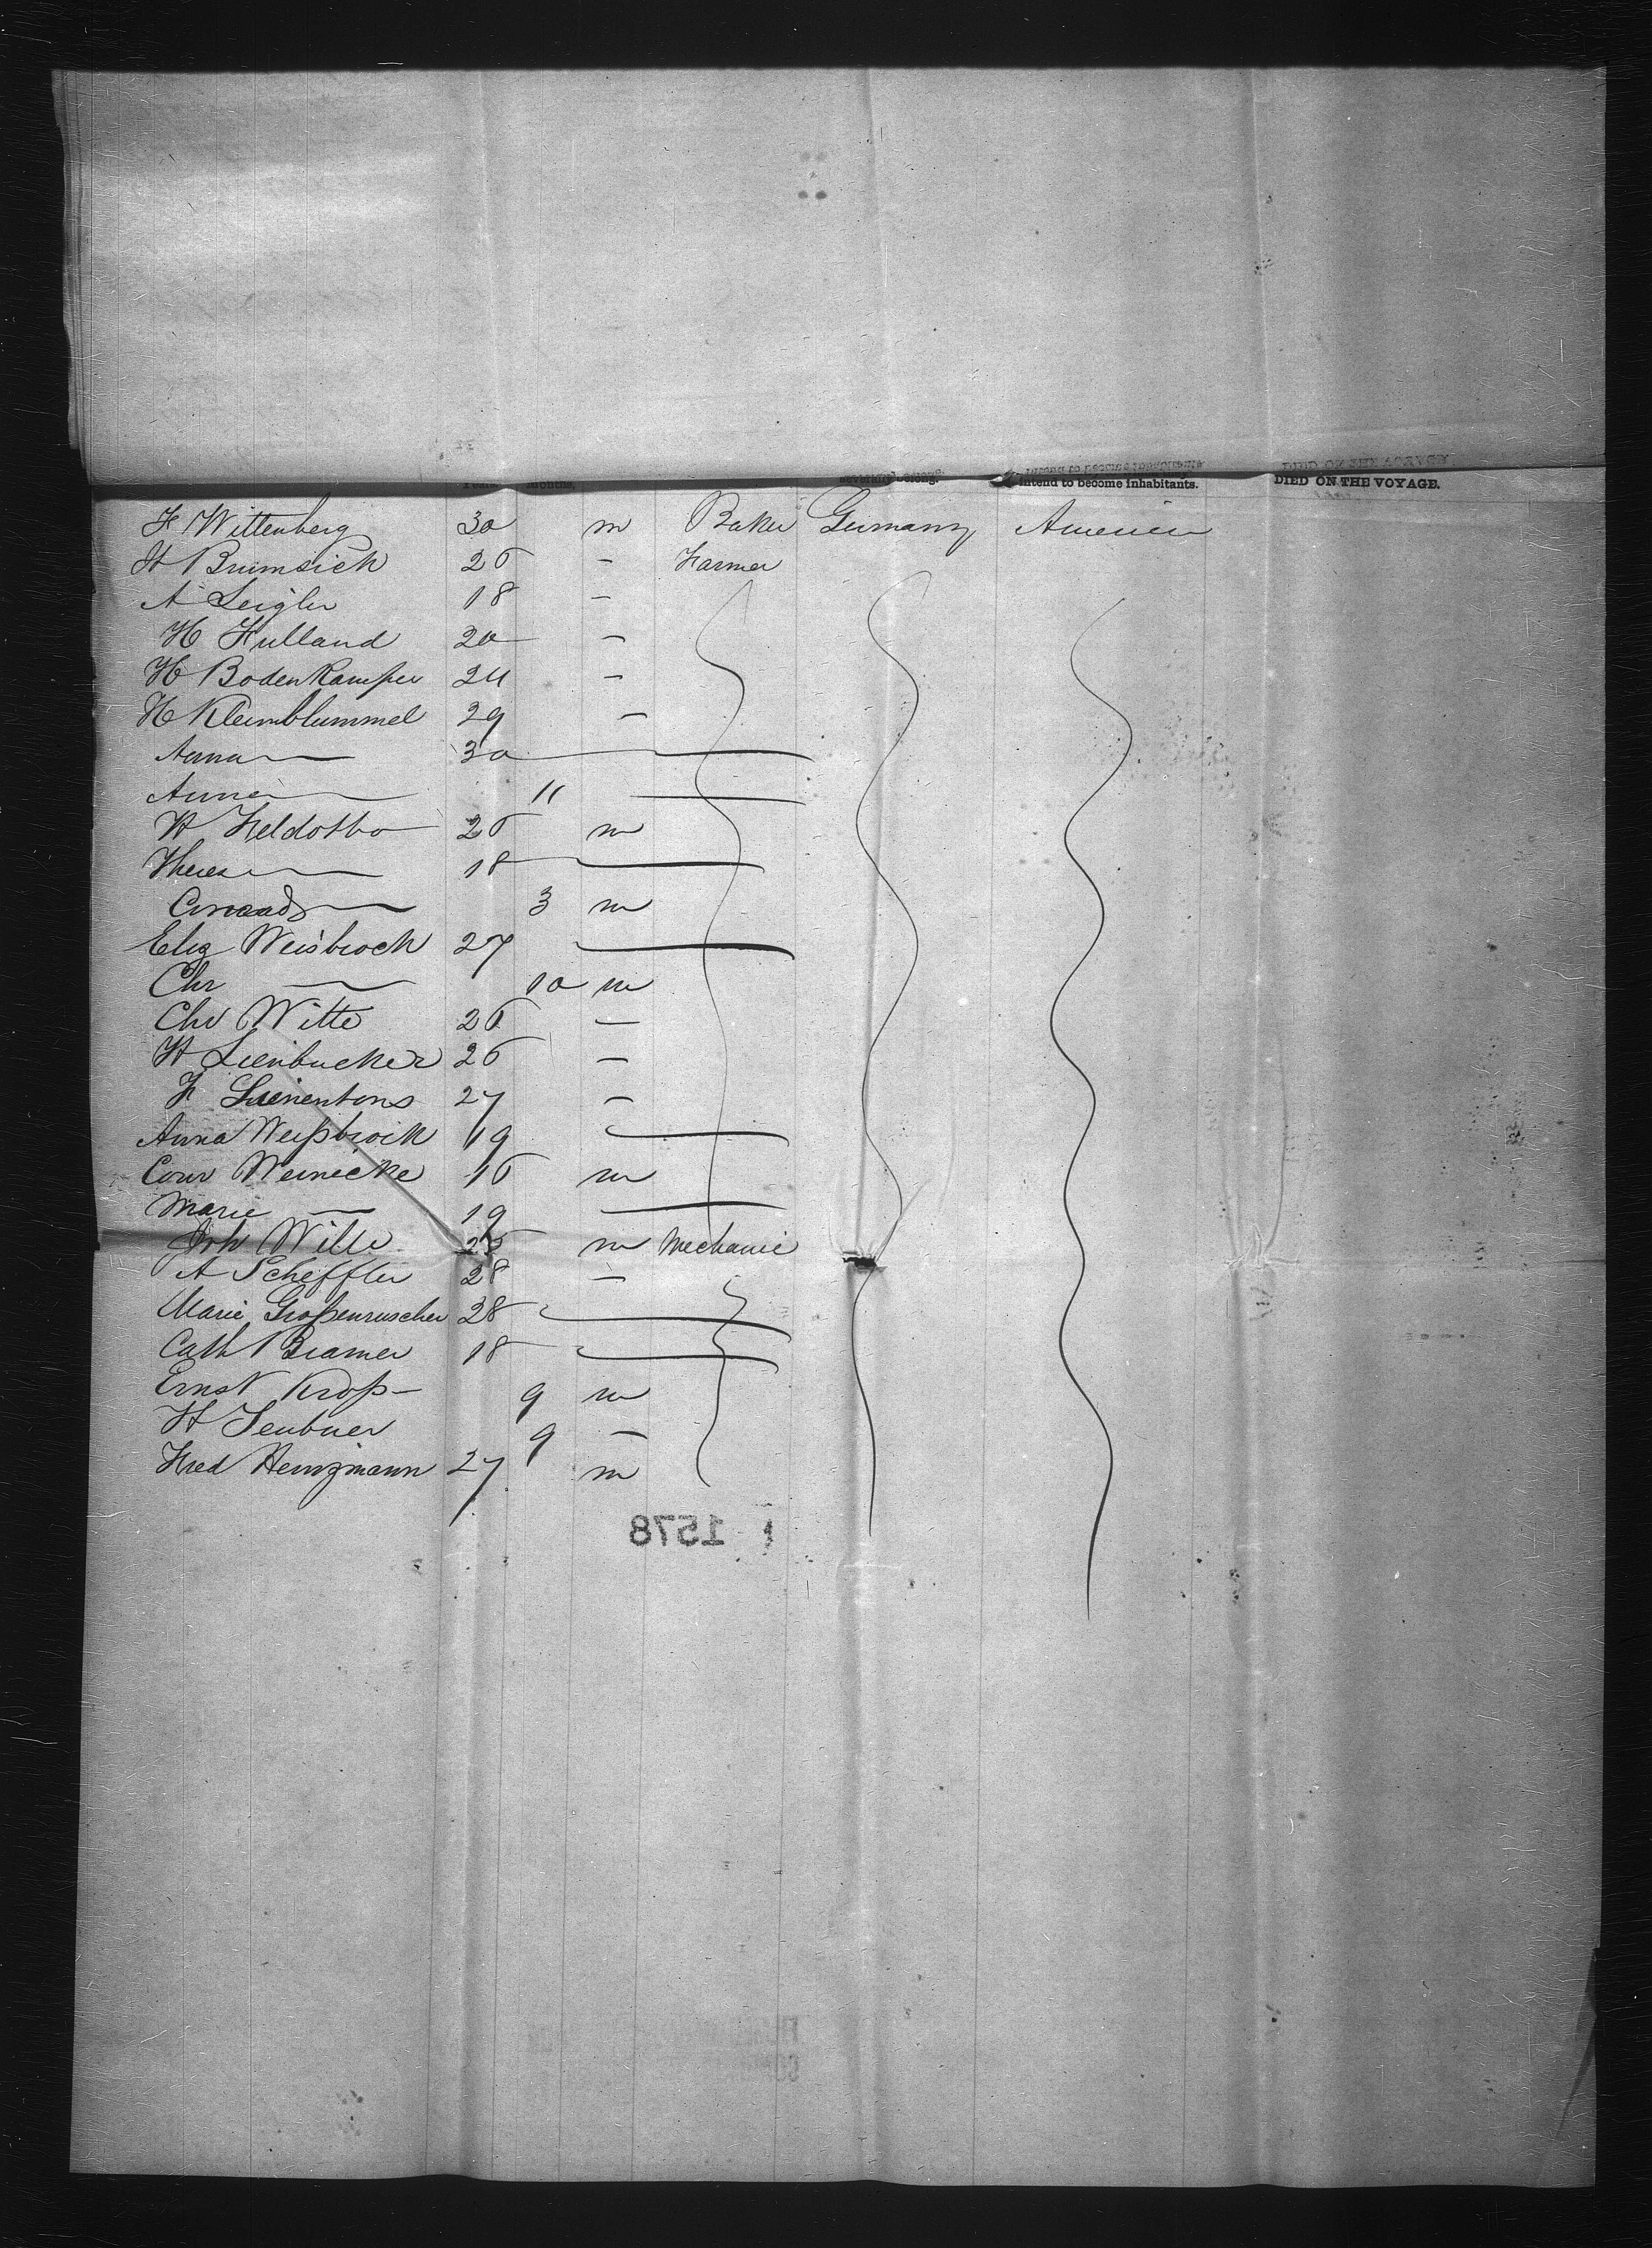 severally belong. intend to become inhabitants. DIED ON THE VOYAGE.
F Wittenberg 30 m Baker Germany America
H Brumsick 26 – Farmer
A Seigler 18 –
H Hulland 20 –
H Bodenkamper 24 –
H Kleimblummel 29 –
Anna — 30 —
Anna — 11 —
H Heldotho 26 m
Theres — 18 —
Conrad — 3 m
Eliz Weisbrock 27 —
Chr — 10 m
Chr Witte 26 –
H Lienbucker 26 –
F Luenentons 27 –
Anna Weißbrock 19 —
Conr Weinecke 16 m
Marie — 19 —
Joh Wille 25 m Mechanic
A Scheffler 28 –
Marie Großenruscher 28 —
Cath Bramer 18 —
Ernst Kroß 9 m
H Teubner 9 –
Fred Heinzmann 27 m
1578